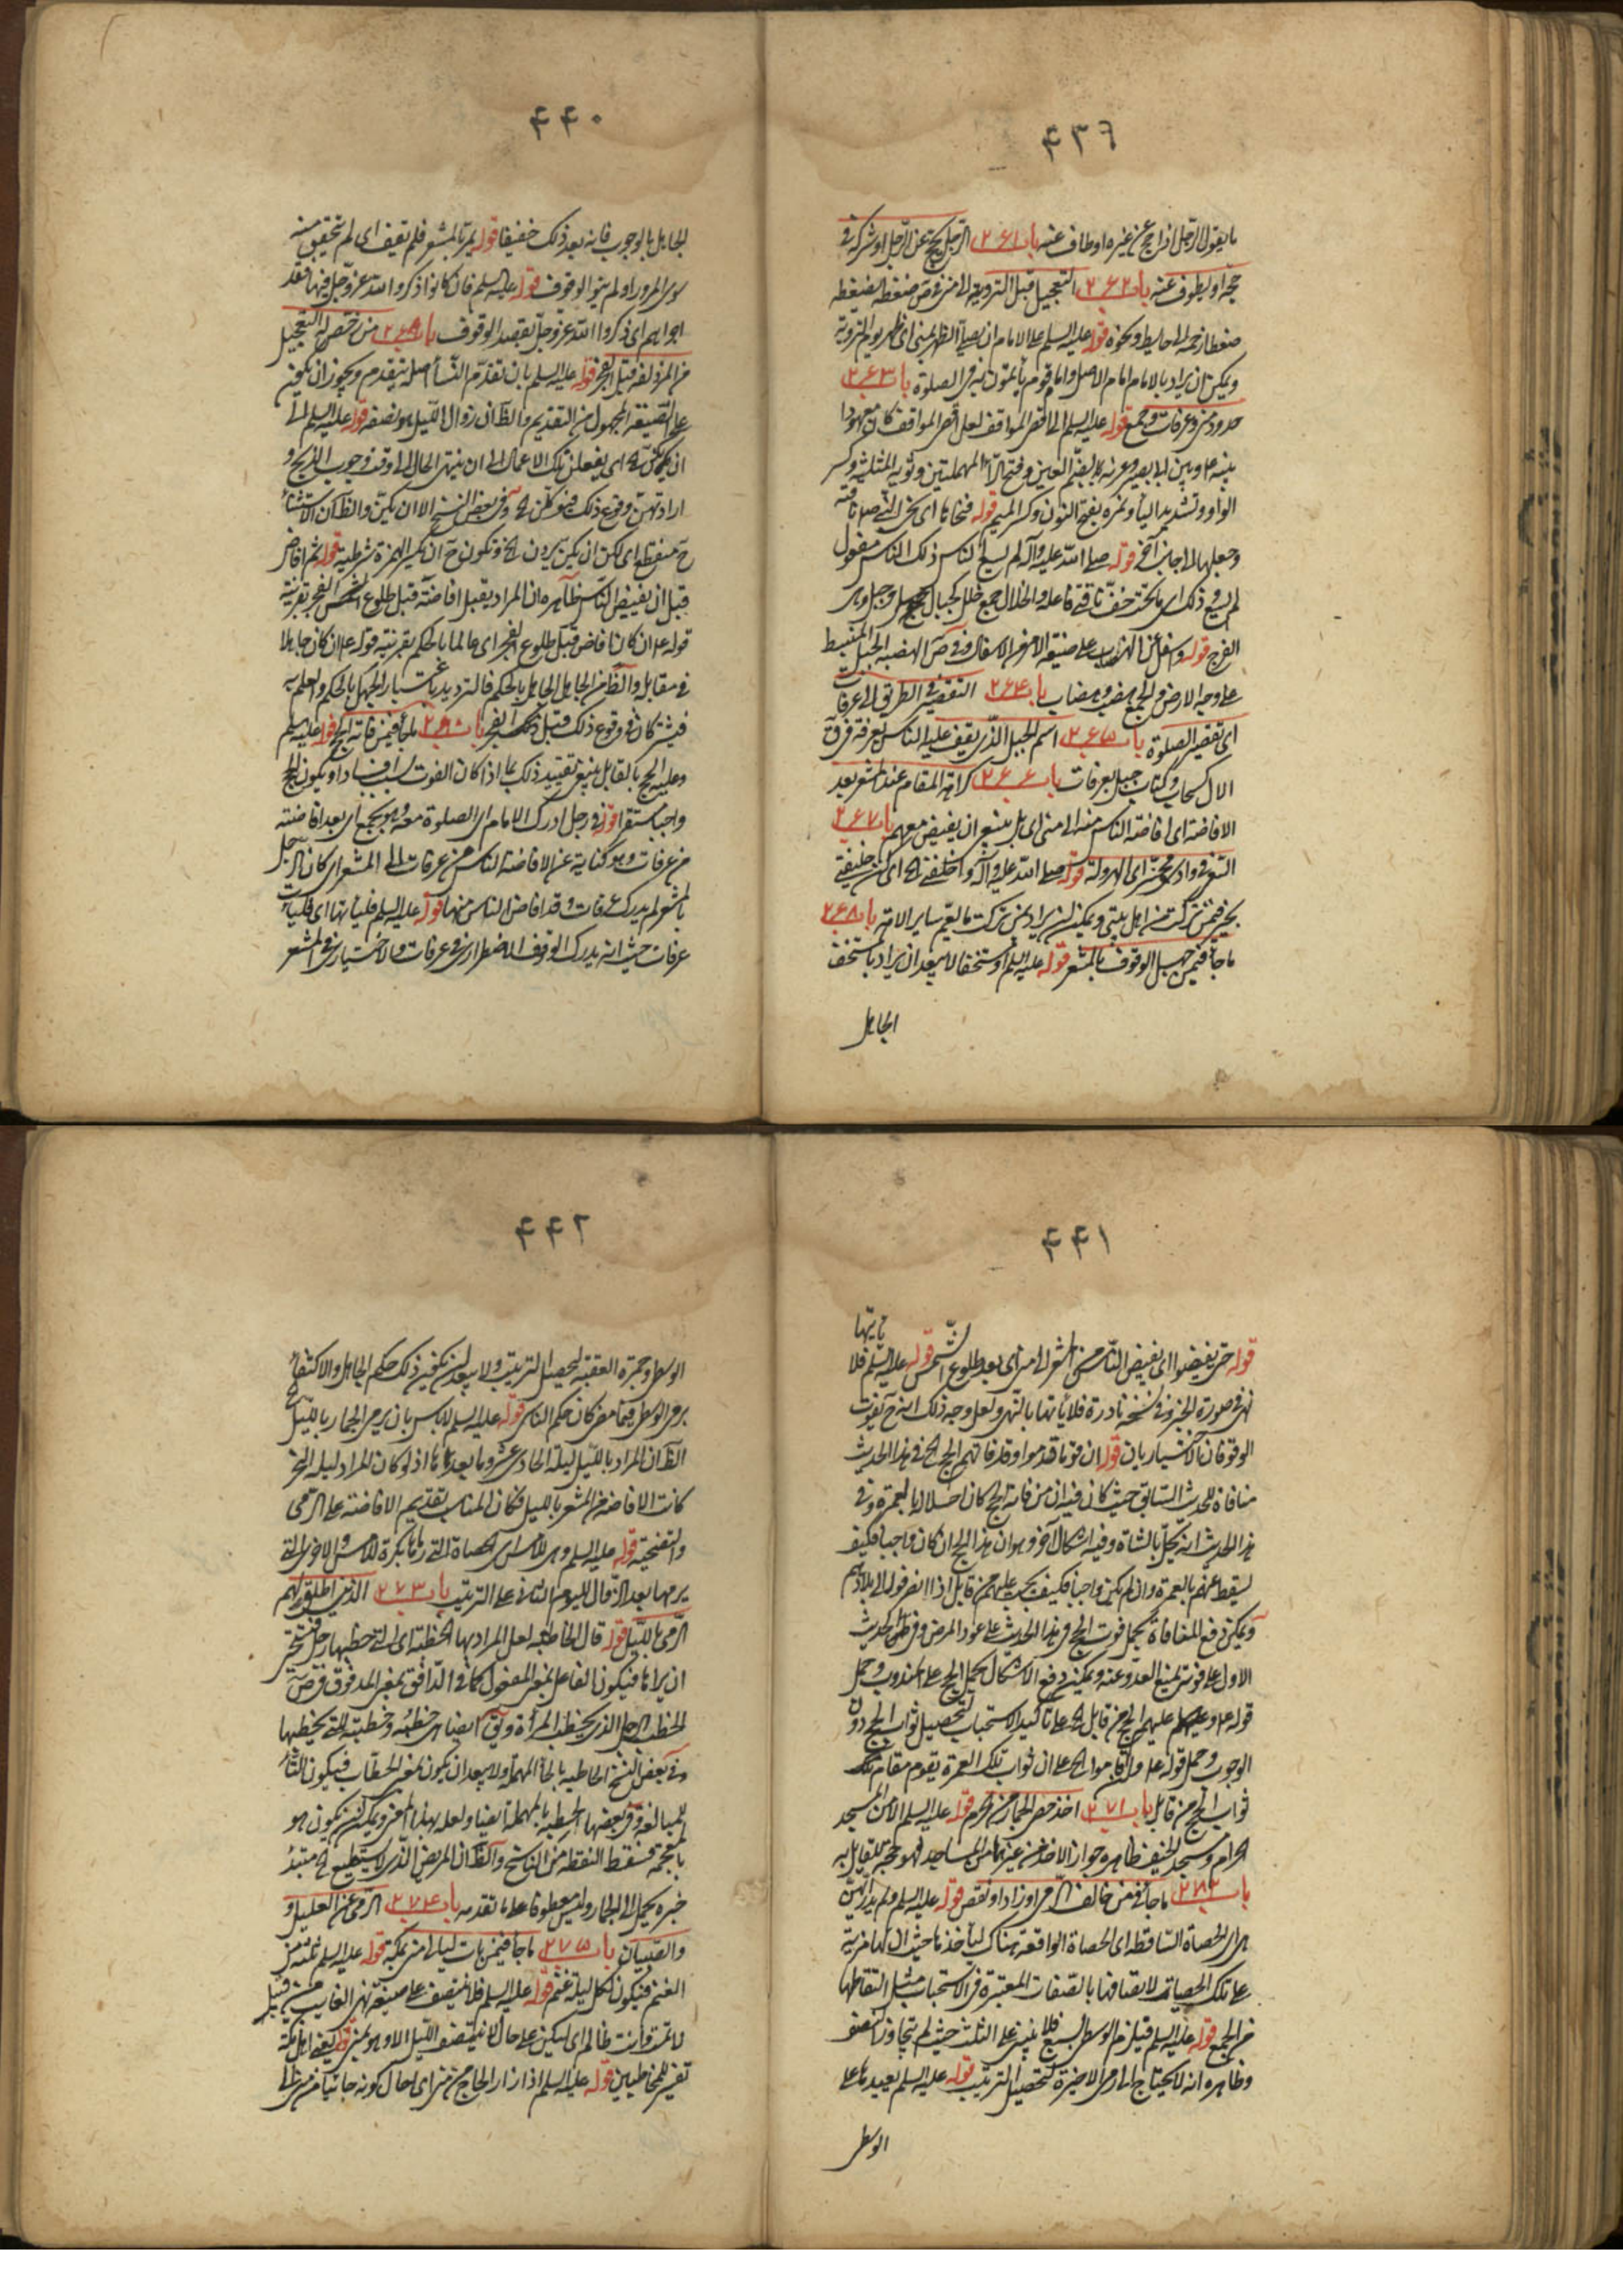 ٤٣٩
ما يقول الرجل اذا حج عن غيره او طاف عنه باب ٢٦١ الرجل يحج عن الرجل او يشركه في
حجه او يطوف عنه باب ٢٦٢ التعجيل قبل التروية الى منى في ص ضغطه يضغطه
ضغطا زحمه الى حايط ونحوه قوله عليه السلم على الامام ان يصلي الظهر بمنى اي ظهر يوم التروية
ويمكن ان يراد بالامام امام الاصل وامام قوم يأتمون به في الصلوة باب ٢٦٣
حدود منى وعرفات وجمع قوله عليه السلم الى اقصى المواقف لعل اقصى المواقف كان معهودا
بينه ع وبين ابا بصير وعرنه بضم العين وفتح الراء المهملتين وثويه المثلثه وكسر
الواو وتشديد الياء ونمره بفتح النون وكسر الميم قوله فنحاها اي نحى النبي ص ناقته
وجعلها الى جانب آخر قوله صلى الله عليه وآله لم يسع الناس ذلك الناس مفعول
لم يسع وذلك اي ما تحت خف ناقتي فاعله والخلال جمع خلل كجبال وجبل وهي
الفرج قوله واسفل عن الهضاب على صيغة الامر من الاسفال وفي ص الهضبه الجبل المنبسط
على وجه الارض والجمع هضب وهضاب باب ٢٦٤ التقصير في الطريق الى عرفات
اي تقصير الصلوة باب ٢٦٥ اسم الجبل الذي يقف عليه الناس بعرفه في ق
الال كسحاب وكتاب جبل بعرفات باب ٢٦٦ كراهة المقام عند المشعر بعد
الافاضة اي افاضة الناس منه الى منى اي بل ينبغي ان يفيض معهم باب ٢٦٧
السعي في وادي محسر اي الهرولة قوله صلى الله عليه وآله واخلفني اي كن خليفتي
بخير فيمن تركت من اهل بيتي ويمكن ان يراد بمن تركت ما يعم ساير الامة باب ٢٦٨
ما جاء فيمن جهل الوقوف بالمشعر قوله عليه السلم او مستخفا لا يبعد ان يراد بالمستخف
الجاهل
٤٤٠
الجاهل بالوجوب فانه يعد ذلك خفيفا قوله يمر بالمشعر فلم يقف اي لم يتحقق منه
سوى المرور او لم ينو الوقوف قوله عليه السلم فان كانوا ذكروا الله عز وجل فيها فقد
اجزاهم اي ذكروا الله عز وجل بقصد الوقوف باب ٢٦٩ من رخص له التعجيل
من المزدلفه قبل الفجر قوله عليه السلم بان تقدم النساء اصله تتقدم ويجوز ان يكون
على الصيغة المجهول من التقديم والظ ان زوال الليل هو نصفه قوله عليه السلم الى
ان يمكن اي يفعلن تلك الاعمال الى ان ينتهي الحال الى وقت وجوب الذبح و
ارادتهن وقوع ذلك فيوكلن وفي بعض النسخ الا ان يكن والظ ان الاستثناء
ح منقطع اي لكن ان يكن يردن وتكون ح ان بكسر الهمزة شرطية قوله ثم افاض
قبل ان يفيض الناس ظاهره ان المراد بقبل افاضته قبل طلوع الفجر بقرينة
قوله ع ان كان افاض قبل طلوع الفجر اي عالما بالحكم بقرينة قوله ع ان كان جاهلا
في مقابله والظ من الجاهل الجاهل بالحكم فالترديد باعتبار الجهل بالحكم والعلم به
فيشتركان في وقوع ذلك قبل الفجر باب ٢٧٠ ما جاء فيمن فاته الحج قوله عليه السلم
وعليه الحج بالقابل ينبغي تقييد ذلك بما اذا كان الفوت بسبب افساد او يكون الحج
واجبا مستقرا قوله في رجل ادرك الامام اي الصلوة معه وهو بجمع اي بعد افاضته
من عرفات وهو كناية عن الافاضة الناس من عرفات الى المشعر اي كان الرجل
بالمشعر لم يدرك عرفات وقد افاض الناس منها قوله عليه السلم فليأتها اي فليأت
عرفات حيث انه يدرك الوقوف الاضطراري في عرفات والاختياري في المشعر
٤٤١
قوله حتى يفيضوا اي يفيض الناس من المشعر الى منى اي بعد طلوع الشمس قوله عليه السلم فلا يأتيها
نهي في صورة الخبر وفي نسخة نادرة فلا يأتها بالنهي ولعل وجه ذلك انه ح يفوت
الوقوفان الاختياريان قوله ان قوما قدموا وقد فاتهم الحج في هذا الحديث
منافاة للحديث السابق حيث كان فيه ان من فاته الحج كان احلالها بالعمرة وفي
هذا الحديث انه يحل بالشاة وفيه اشكال آخر وهو ان هذا الحج ان كان واجبا فكيف
يسقط عنهم بالعمرة وان لم يكن واجبا فكيف يجب عليهم من قابل اذا انصرفوا الى بلادهم
ويمكن دفع المنافاة بحمل فوت الحج في هذا الحديث على عود المرض وفي الحديث
الاول على فوته بمنع العدو عنه ويمكن دفع الاشكال بحمل الحج على المندوب وحمل
قوله ع وعليهم الحج من قابل على تاكيد الاستحباب لتحصيل ثواب الحج دون
الوجوب وحمل قوله ع وان اقاموا على ان ثواب تلك العمرة يقوم مقام
ثواب الحج من قابل باب ٢٧١ اخذ حصى الجمار من الحرم قوله عليه السلم الا من المسجد
الحرام ومسجد الخيف ظاهره جواز الاخذ من غيرهما من المساجد فهو حجة للقايل به
باب ٢٧٢ ما جاء فيمن خالف الرمي او زاد او نقص قوله عليه السلم ولم يدر ايهن
هي اي الحصاة الساقطه اي الحصاة الواقعة هناك ليأخذها حيث ان لها مزية
على تلك الحصيات لاتصافها بالصفات المعتبرة في الاستحباب مثل التقاطها
من الجمع قوله عليه السلم فيلزم الوسطى بسبع فلا يبنى على الثلث حيث لم يتجاوز النصف
وظاهره انه لا يحتاج الى رمي الاخيرة لتحصيل الترتيب قوله عليه السلم يعيدها على
الوسطى
٤٤٢
الوسطى وجمرة العقبة لتحصيل الترتيب ولا يبعد ان يكون ذلك حكم الجاهل والاكتفاء
برمي الوسطى فيما مضى كان حكم الناسي قوله عليه السلم لا باس بان يرمي الجمار بالليل
الظ ان المراد بالليل ليلة الحادي عشر وما بعدها اذ لو كان المراد ليلة النحر
كانت الافاضة من المشعر بالليل فكان المناسب تقديم الافاضة على الرمي
والتضحية قوله عليه السلم وهي للامس اي الحصاة التي رماها بكرة للامس والاخرى التي
يرميها بعد الزوال لليوم الثاني على الترتيب باب ٢٧٣ الذين اطلق لهم
الرمي بالليل قوله قال الخاطبة لعل المراد بها الخطبة اي التي خطبها رجل فتستحي
ان يراها فيكون الفاعل بمعنى المفعول كما في الدافق بمعنى المدفوق في ص
الخطب الرجل الذي يخطب المرأة ويق ايضا هي خطبه وخطبته التي يخطبها
وفي بعض النسخ الحاطبه بالحاء المهملة ولا يبعد ان يكون بمعنى الحطاب فيكون التاء
للمبالغة وفي بعضها الحطبه بالمهملة ايضا ولعله بهذا المعنى ويمكن ان يكون هو
بالمعجمة فسقط النقطة من الناسخ والظ ان المريض الذي لا يستطيع مبتدأ
خبره يحمل الى الجمار وليس معطوفا على ما تقدمه باب ٢٧٤ الرمي عن العليل و
والصبيان باب ٢٧٥ ما جاء فيمن بات ليالي منى بمكة قوله عليه السلم ثلثة من
الغنم فيكون لكل ليلة غنم قوله عليه السلم فلا ينتصف على صيغة نهي الغايب من قبيل
لا تمت وانت ظالم اي ليكن على حال لا ينتصف الليل الا وهو بمنى قوله يعني اهل مكة
تفسير للمخاطبين قوله عليه السلم اذا زار الحاج من منى اي حال كونه جائيا من منى الى